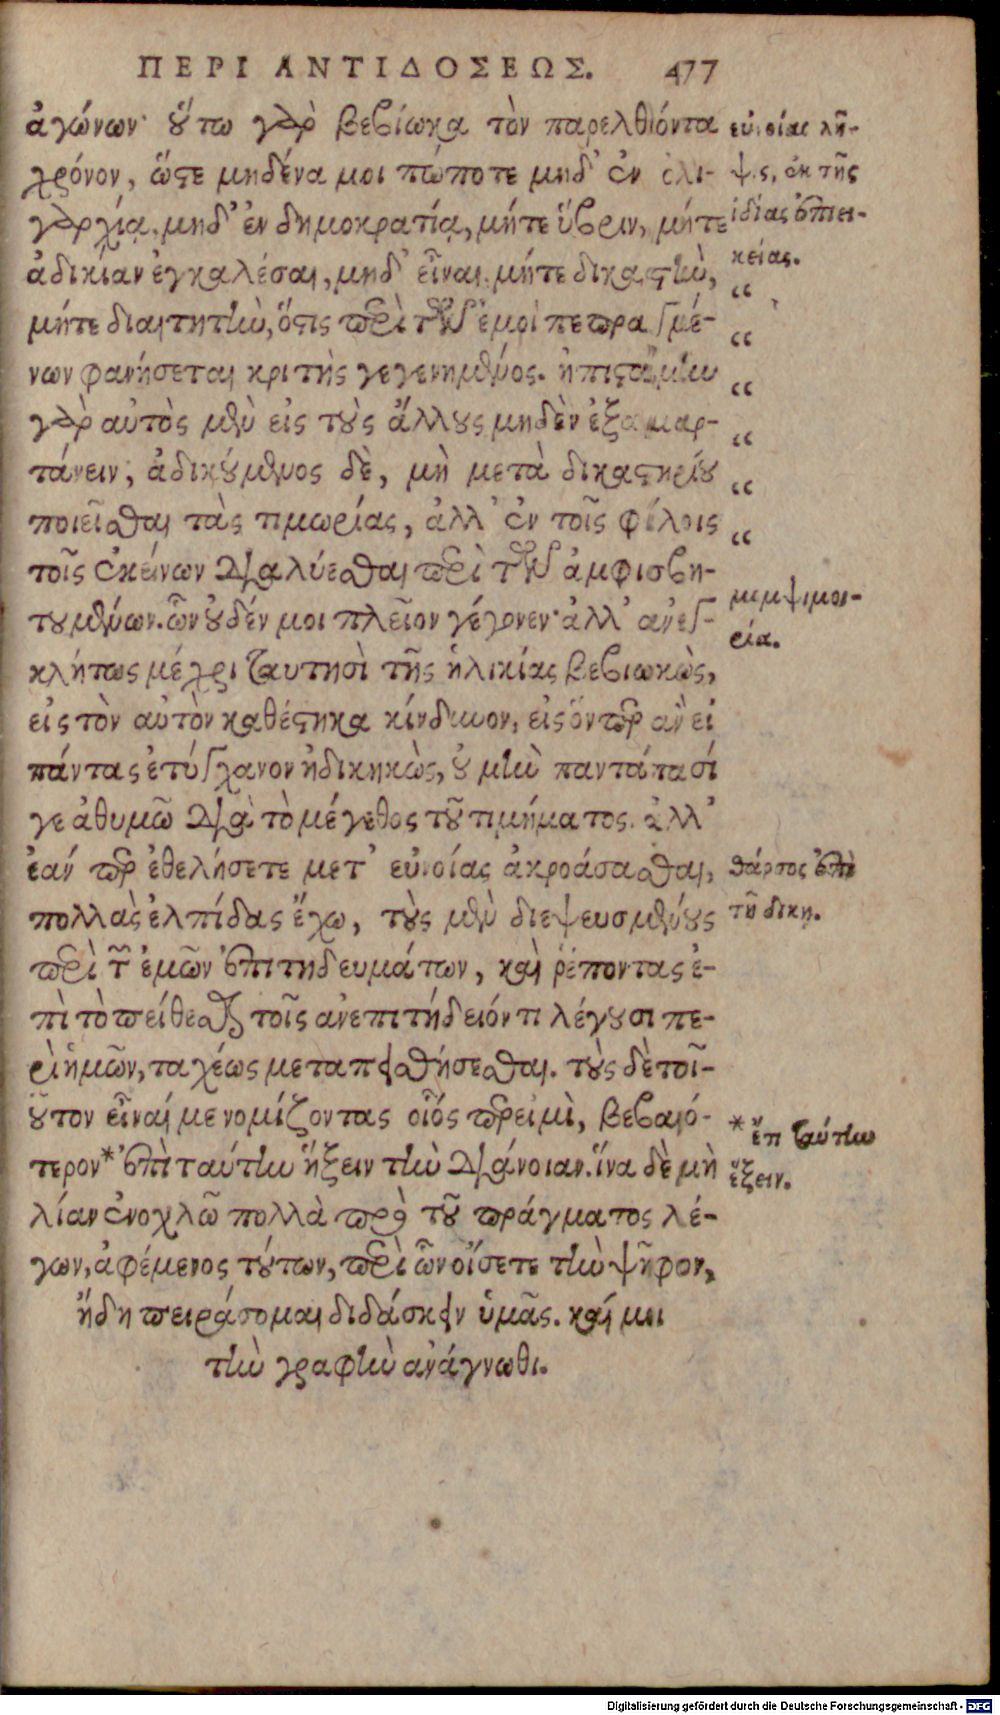 ΠΕΡΙ ΑΝΤΙΔΟΣΕΩΣ. 477
ἀγώνων· οὕτω γὰρ βεβίωκα τὸν παρελθόντα
χρόνον, ὥςτε μηδένα μοι πώποτε μηδ' ἐν ὀλι-
γαρχίᾳ, μηδ' ἐν δημοκρατίᾳ, μήτε ὕβριν, μήτε
ἀδικίαν ἐγκαλέσαι, μηδ' εἶναι μήτε δικαστὴν,
μήτε διαιτητὴν, ὅστις περὶ τῶν ἐμοὶ πεπραγμέ-
νων φανήσεται κριτὴς γεγενημένος. ἠπιστάμην
γὰρ αὐτὸς μὲν εἰς τοὺς ἄλλους μηδὲν ἐξαμαρ-
τάνειν, ἀδικούμενος δὲ, μὴ μετὰ δικαστηρίου
ποιεῖσθαι τὰς τιμωρίας, ἀλλ' ἐν τοῖς φίλοις
τοῖς ἐκείνων διαλύεσθαι περὶ τῶν ἀμφισβη-
τουμένων. ὧν οὐδέν μοι πλεῖον γέγονεν· ἀλλ' ἀνεγ-
κλήτως μέχρι ταυτησὶ τῆς ἡλικίας βεβιωκὼς,
εἰς τὸν αὐτὸν καθέστηκα κίνδυνον, εἰς ὅνπερ ἂν εἰ
πάντας ἐτύγχανον ἠδικηκὼς, οὐ μὴν παντάπασί
γε ἀθυμῶ διὰ τὸ μέγεθος τοῦ τιμήματος. ἀλλ'
ἐάν περ ἐθελήσετε μετ' εὐνοίας ἀκροάσασθαι,
πολλὰς ἐλπίδας ἔχω, τοὺς μὲν διεψευσμένους
περὶ τῶν ἐμῶν ἐπιτηδευμάτων, καὶ ῥέποντας ἐ-
πὶ τὸ πείθεσθαι τοῖς ἀνεπιτήδειόν τι λέγουσι πε-
ρὶ ἡμῶν, ταχέως μεταπεισθήσεσθαι. τοὺς δὲ τοι-
οῦτον εἶναί με νομίζοντας οἷός περ εἰμὶ, βεβαιό-
τερον* ἐπὶ ταύτην ἥξειν τὴν διάνοιαν. ἵνα δὲ μὴ
λίαν ἐνοχλῶ πολλὰ πρὸ τοῦ πράγματος λέ-
γων, ἀφέμενος τούτων, περὶ ὧν οἴσετε τὴν ψῆφον,
ἤδη πειράσομαι διδάσκειν ὑμᾶς. καί μοι
τὴν γραφὴν ἀνάγνωθι.
εὐνοίας λῆ-
ψις, ἐκ τῆς
ἰδίας ἐπιει-
κείας.
“
“
“
“
“
“
μεμψιμοι-
ρία.
θάρσος ἐπὶ
τῇ δίκῃ.
* ἐπὶ ταύτην
ἕξειν.
Digitalisierung gefördert durch die Deutsche Forschungsgemeinschaft - DFG